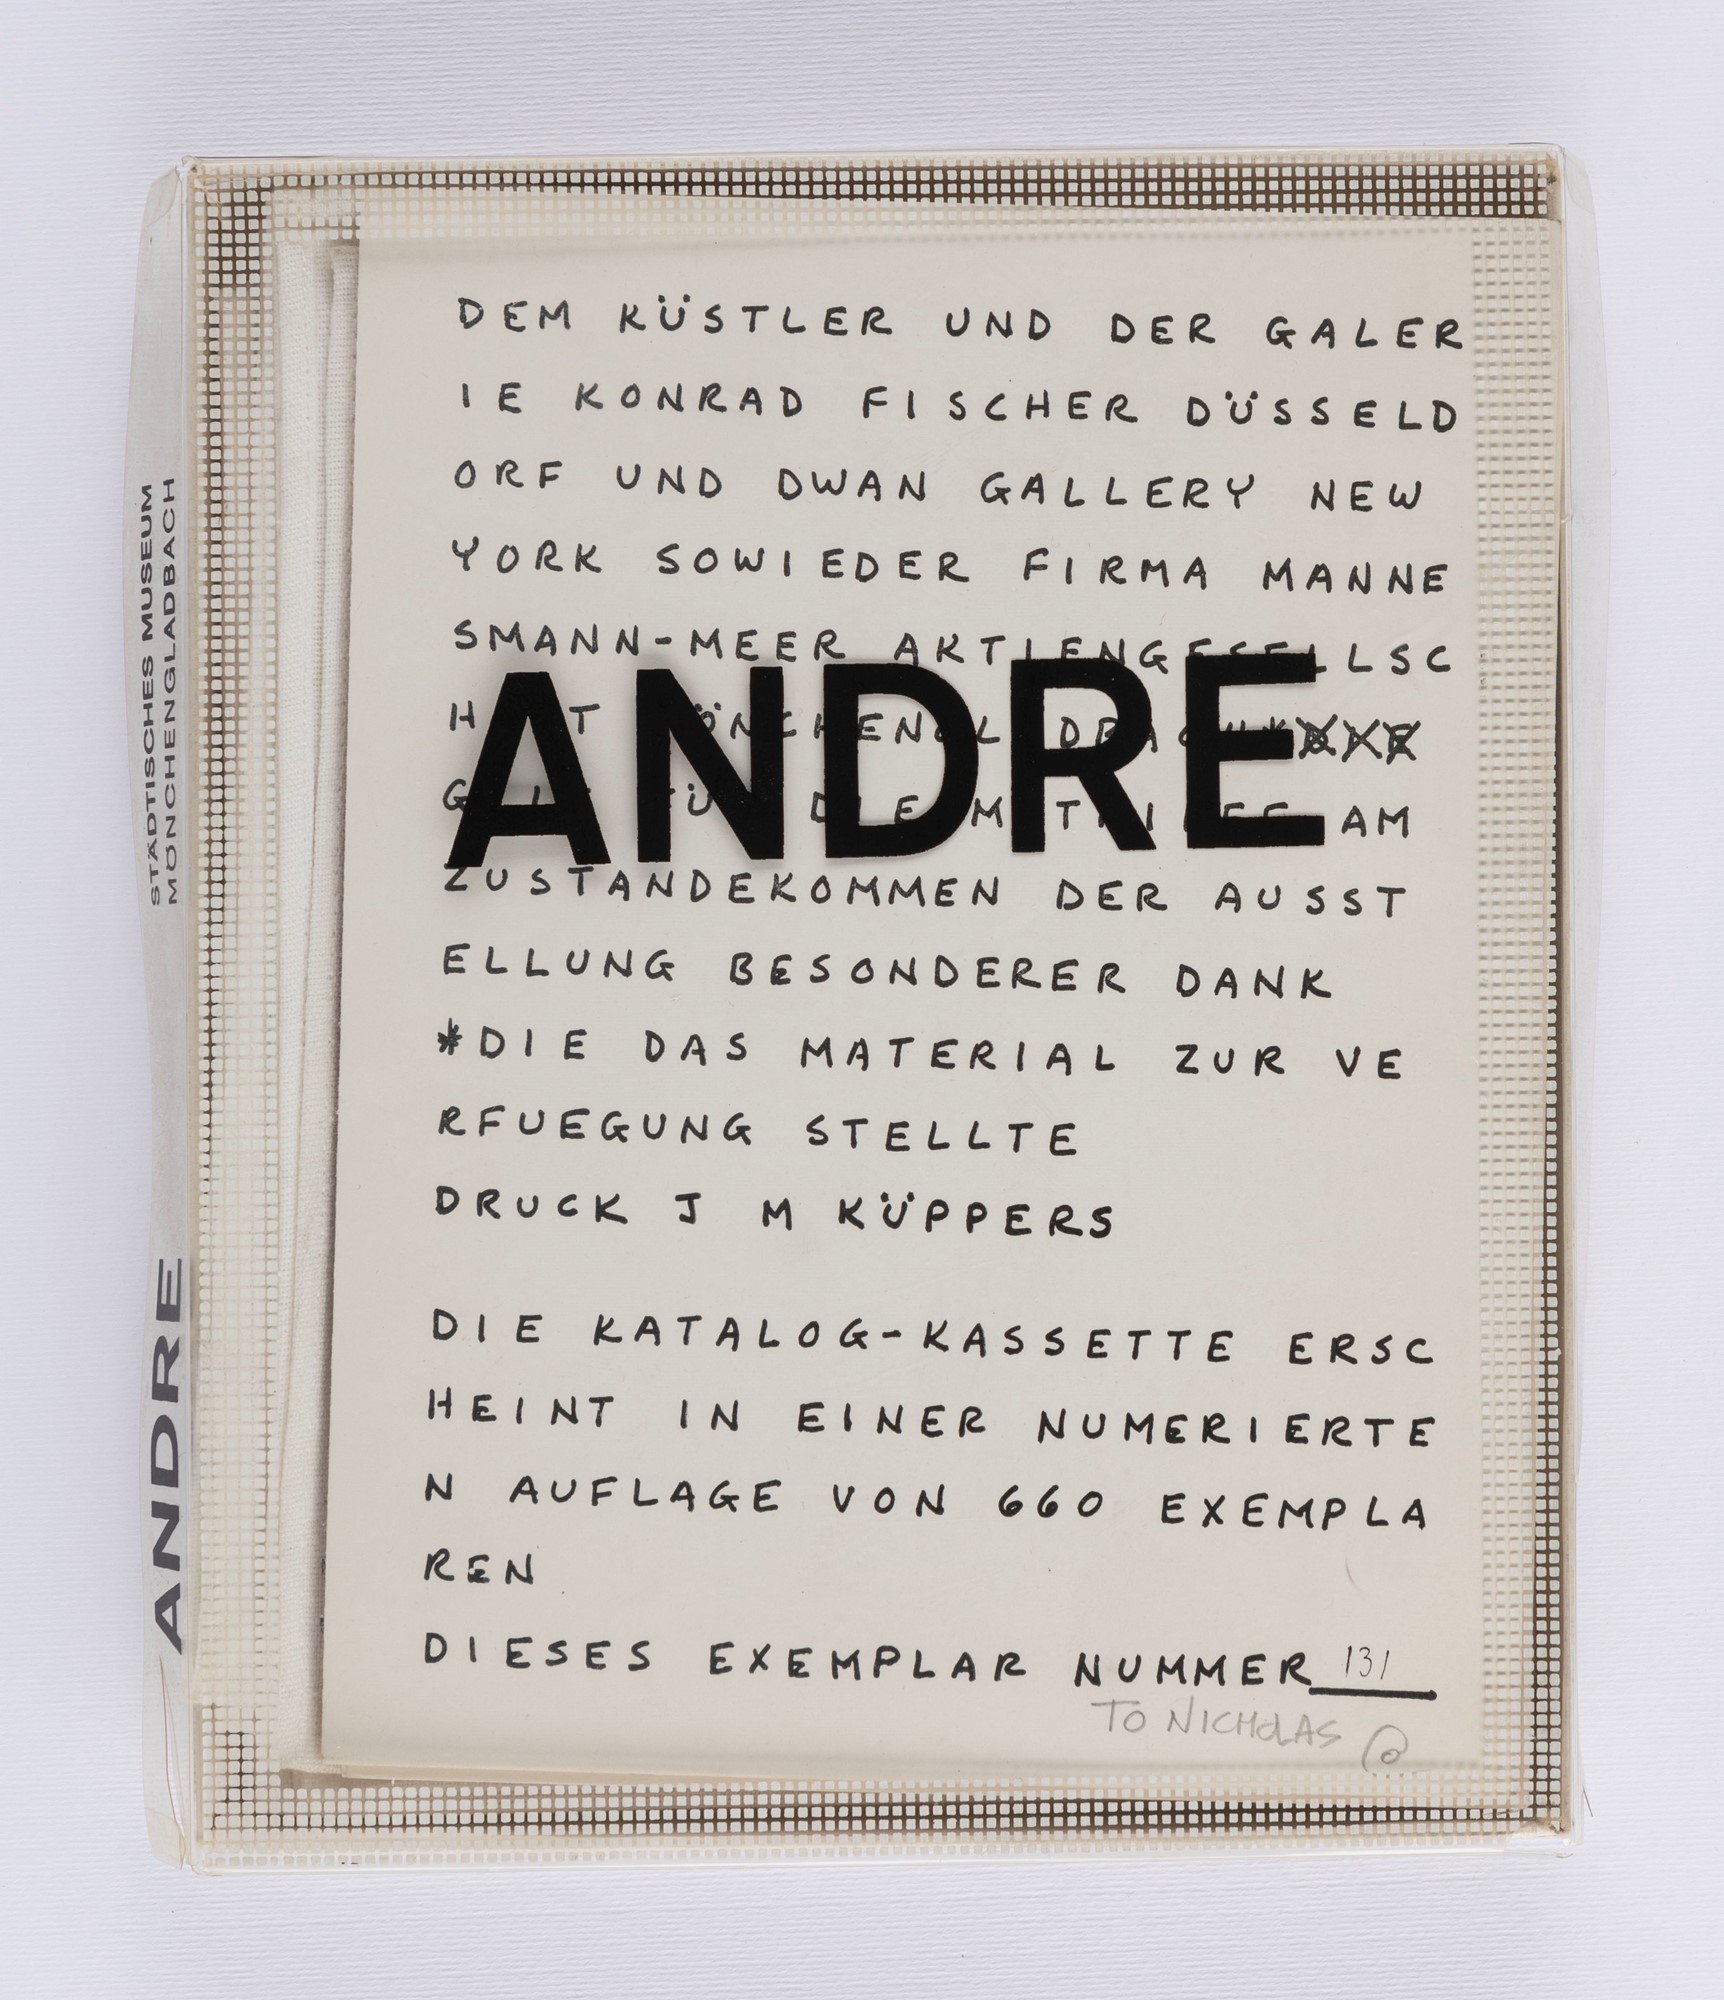 DEM KÜSTLER UND DER GALER
IE KONRAD FISCHER DÜSSELD
ORF UND DWAN GALLERY NEW
YORK SOWIEDER FIRMA MANNE
SMANN-MEER AKTIENGESELLSC
ANDRE
AM
ZUSTANDEKOMMEN DER AUSST
ELLUNG BESONDERER DANK
*DIE DAS MATERIAL ZUR VE
RFUEGUNG STELLTE
DRUCK J M KÜPPERS
DIE KATALOG-KASSETTE ERSC
HEINT IN EINER NUMERIERTE
N AUFLAGE VON 660 EXEMPLA
REN
DIESES EXEMPLAR NUMMER 131
TO NICHOLAS @
STÄDTISCHES MUSEUM
MÖNCHENGLADBACH
ANDRE